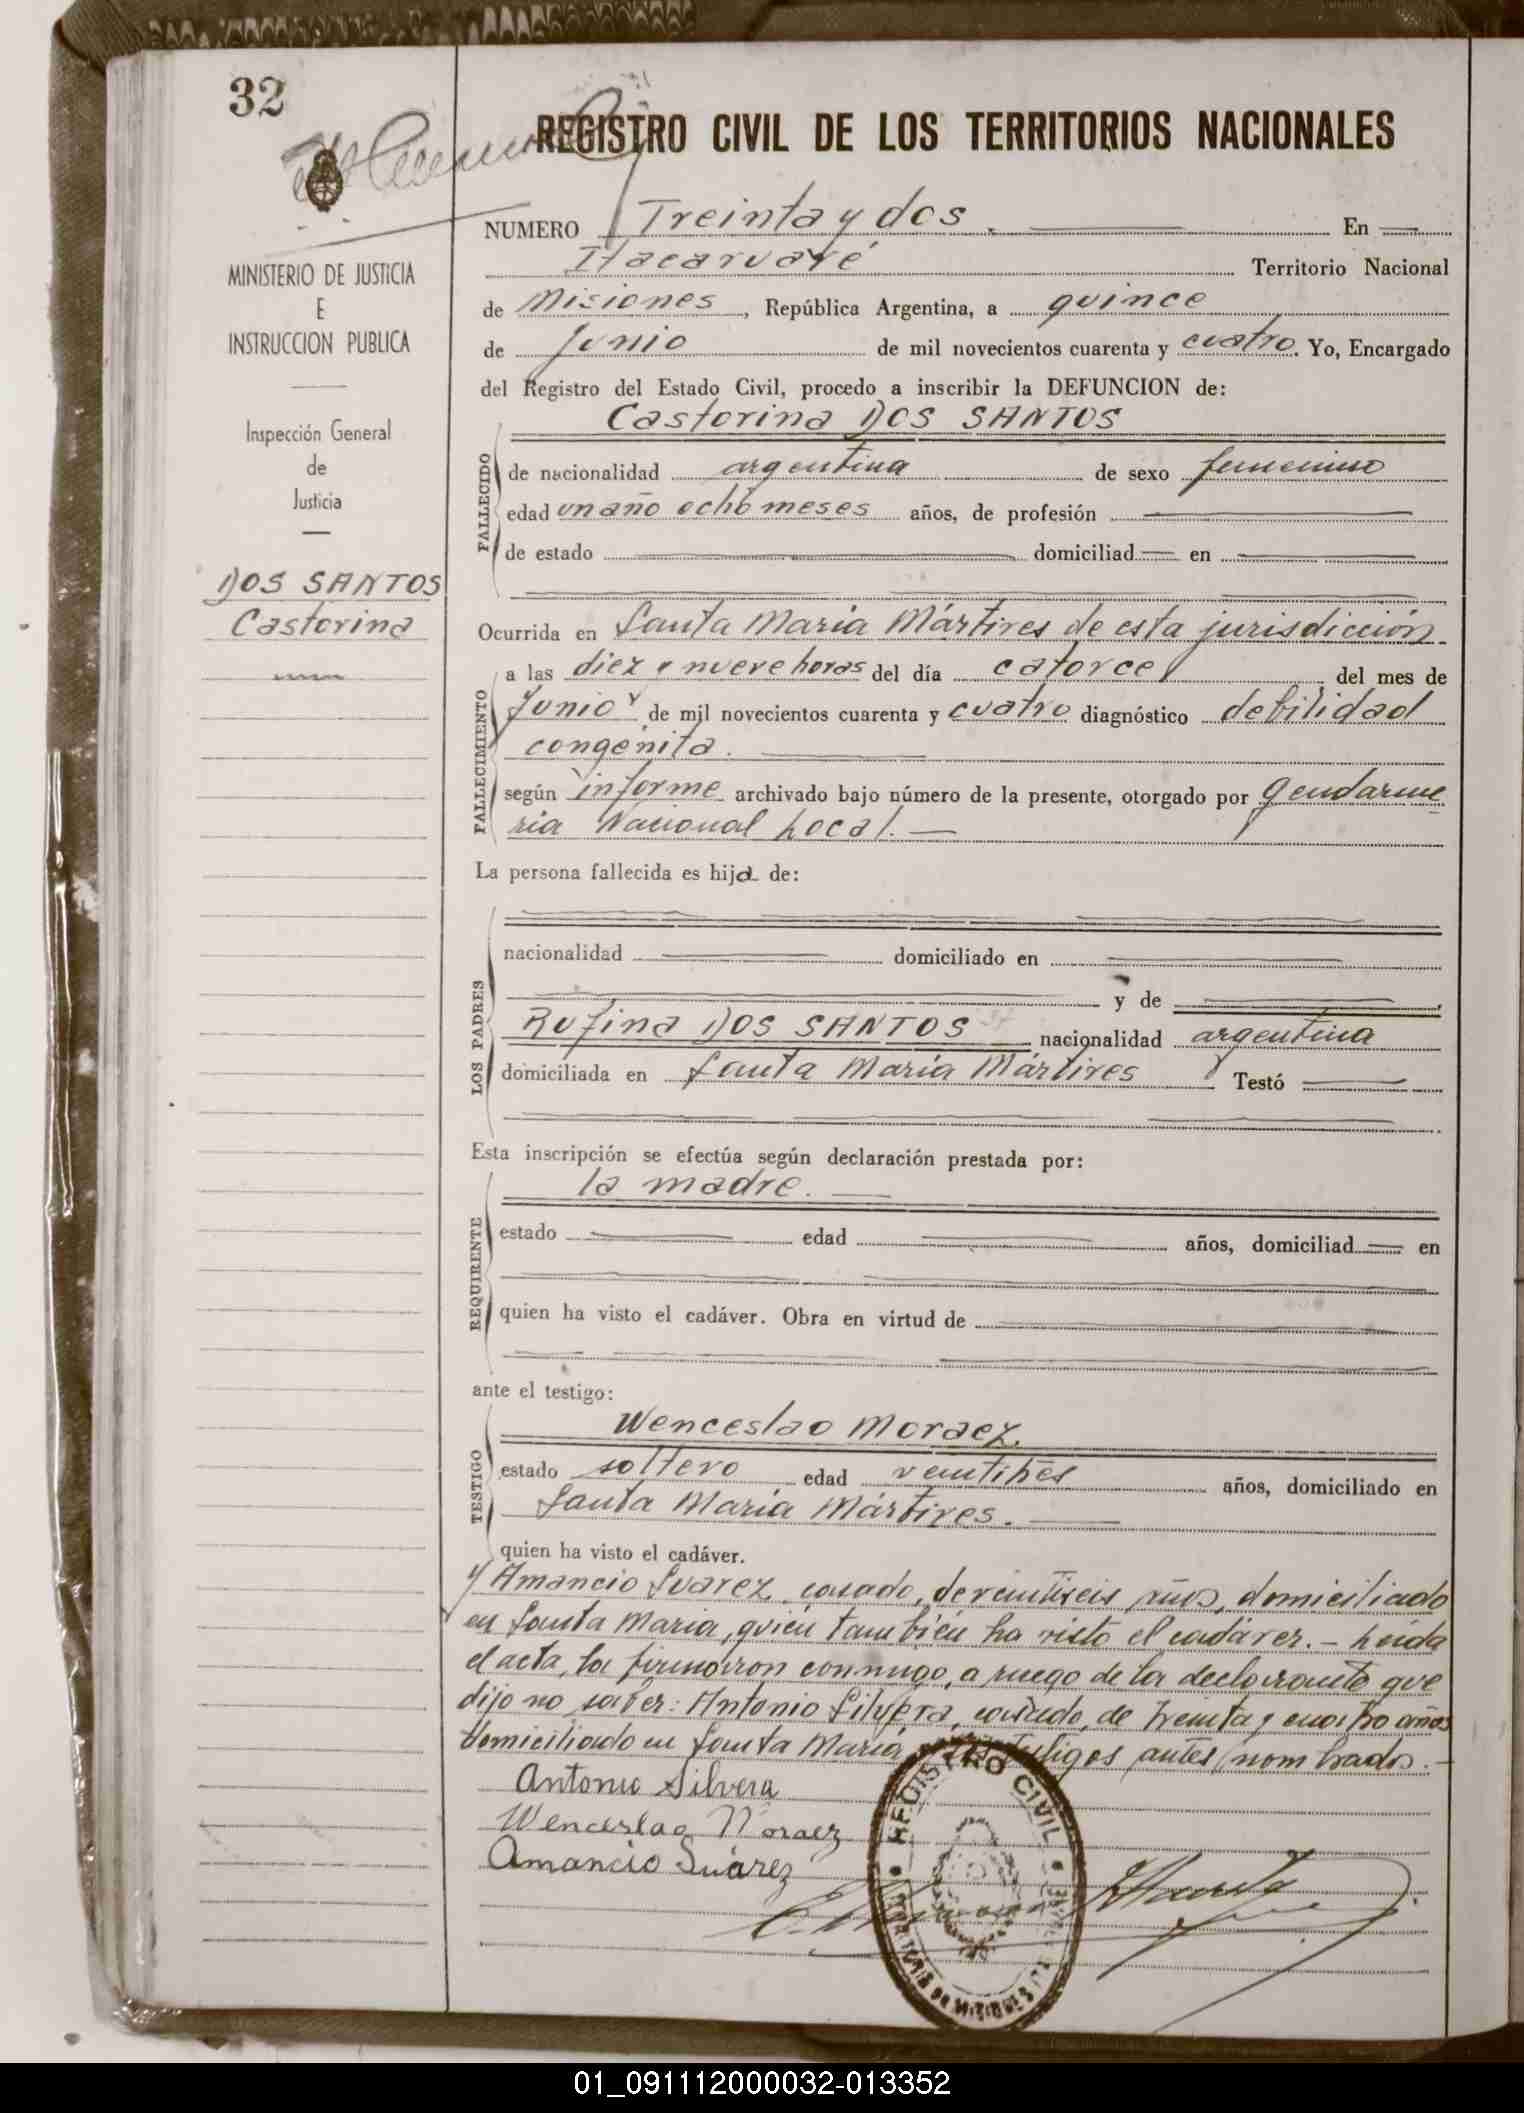 32
REGISTRO CIVIL DE LOS TERRITORIOS NACIONALES
MINISTERIO DE JUSTICIA
E
INSTRUCCION PUBLICA
Inspección General
de
Justicia
DOS SANTOS
Castorina
NUMERO Treinta y dos. En
Itacaruaré Territorio Nacional
de Misiones, República Argentina, a quince
de Junio de mil novecientos cuarenta y cuatro. Yo, Encargado
del Registro del Estado Civil, procedo a inscribir la DEFUNCION de:
Castorina DOS SANTOS
FALLECIDO
de nacionalidad argentina de sexo femenino
edad un año ocho meses años, de profesión
de estado domiciliad en
Ocurrida en Santa María Mártires de esta jurisdicción
FALLECIMIENTO
a las diez y nueve horas del día catorce del mes de
Junio de mil novecientos cuarenta y cuatro diagnóstico debilidad
congénita.
según informe archivado bajo número de la presente, otorgado por Gendarme
ria Nacional Local.
La persona fallecida es hija de:
LOS PADRES
nacionalidad domiciliado en
y de
Rufina DOS SANTOS nacionalidad argentina
domiciliada en Santa María Mártires Testó
Esta inscripción se efectúa según declaración prestada por:
la madre.
REQUIRENTE
estado edad años, domiciliad en
quien ha visto el cadáver. Obra en virtud de
ante el testigo:
Wenceslao Moraez.
TESTIGO
estado soltero edad veintitrés años, domiciliado en
Santa María Mártires.
quien ha visto el cadáver.
y Amancio Suarez, casado, de veintiseis años, domiciliado
en Santa Maria, quien también ha visto el cadáver. - Leida
el acta, la firmaron conmigo, a ruego de la declarante que
dijo no saber: Antonio Silvera, casado, de treinta y cuatro años
domiciliado en Santa María testigos antes nombrados. -
Antonio Silvera
Wenceslao Moraez
Amancio Suárez
REGISTRO CIVIL
01_091112000032-013352